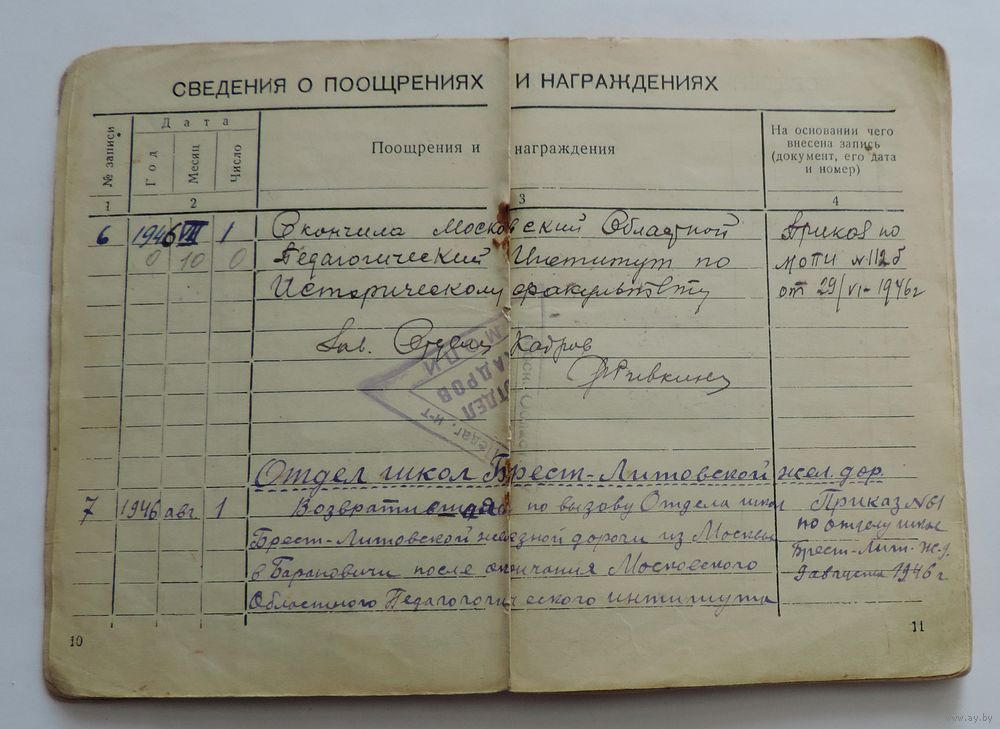 СВЕДЕНИЯ О ПООЩРЕНИЯХ И НАГРАЖДЕНИЯХ
№ записи
Дата
Год
Месяц
Число
Поощрения и награждения
На основании чего
внесена запись
(документ, его дата
и номер)
1 2 3 4
6 1946 VII 1 Окончила Московский Областной
Приказ по
0 10 0 Педагогический Институт по
МОПИ № 112б
Историческому факультету
от 29/VI-1946г
Зав. Отдел Кадров
Ривкина
МОПИ
ОТДЕЛ
КАДРОВ
Педаг. и-т
Отдел школ Брест-Литовской жел. дор.
7 1946 авг 1 по вызову Отдела школ
Приказ №61
Брест-Литовской железной дороги из Москвы
по отделу школ
в Барановичи после окончания Московского
Брест-Лит. ж.д.
Областного Педагогического института
9 августа 1946г
10
11
www.ay.by